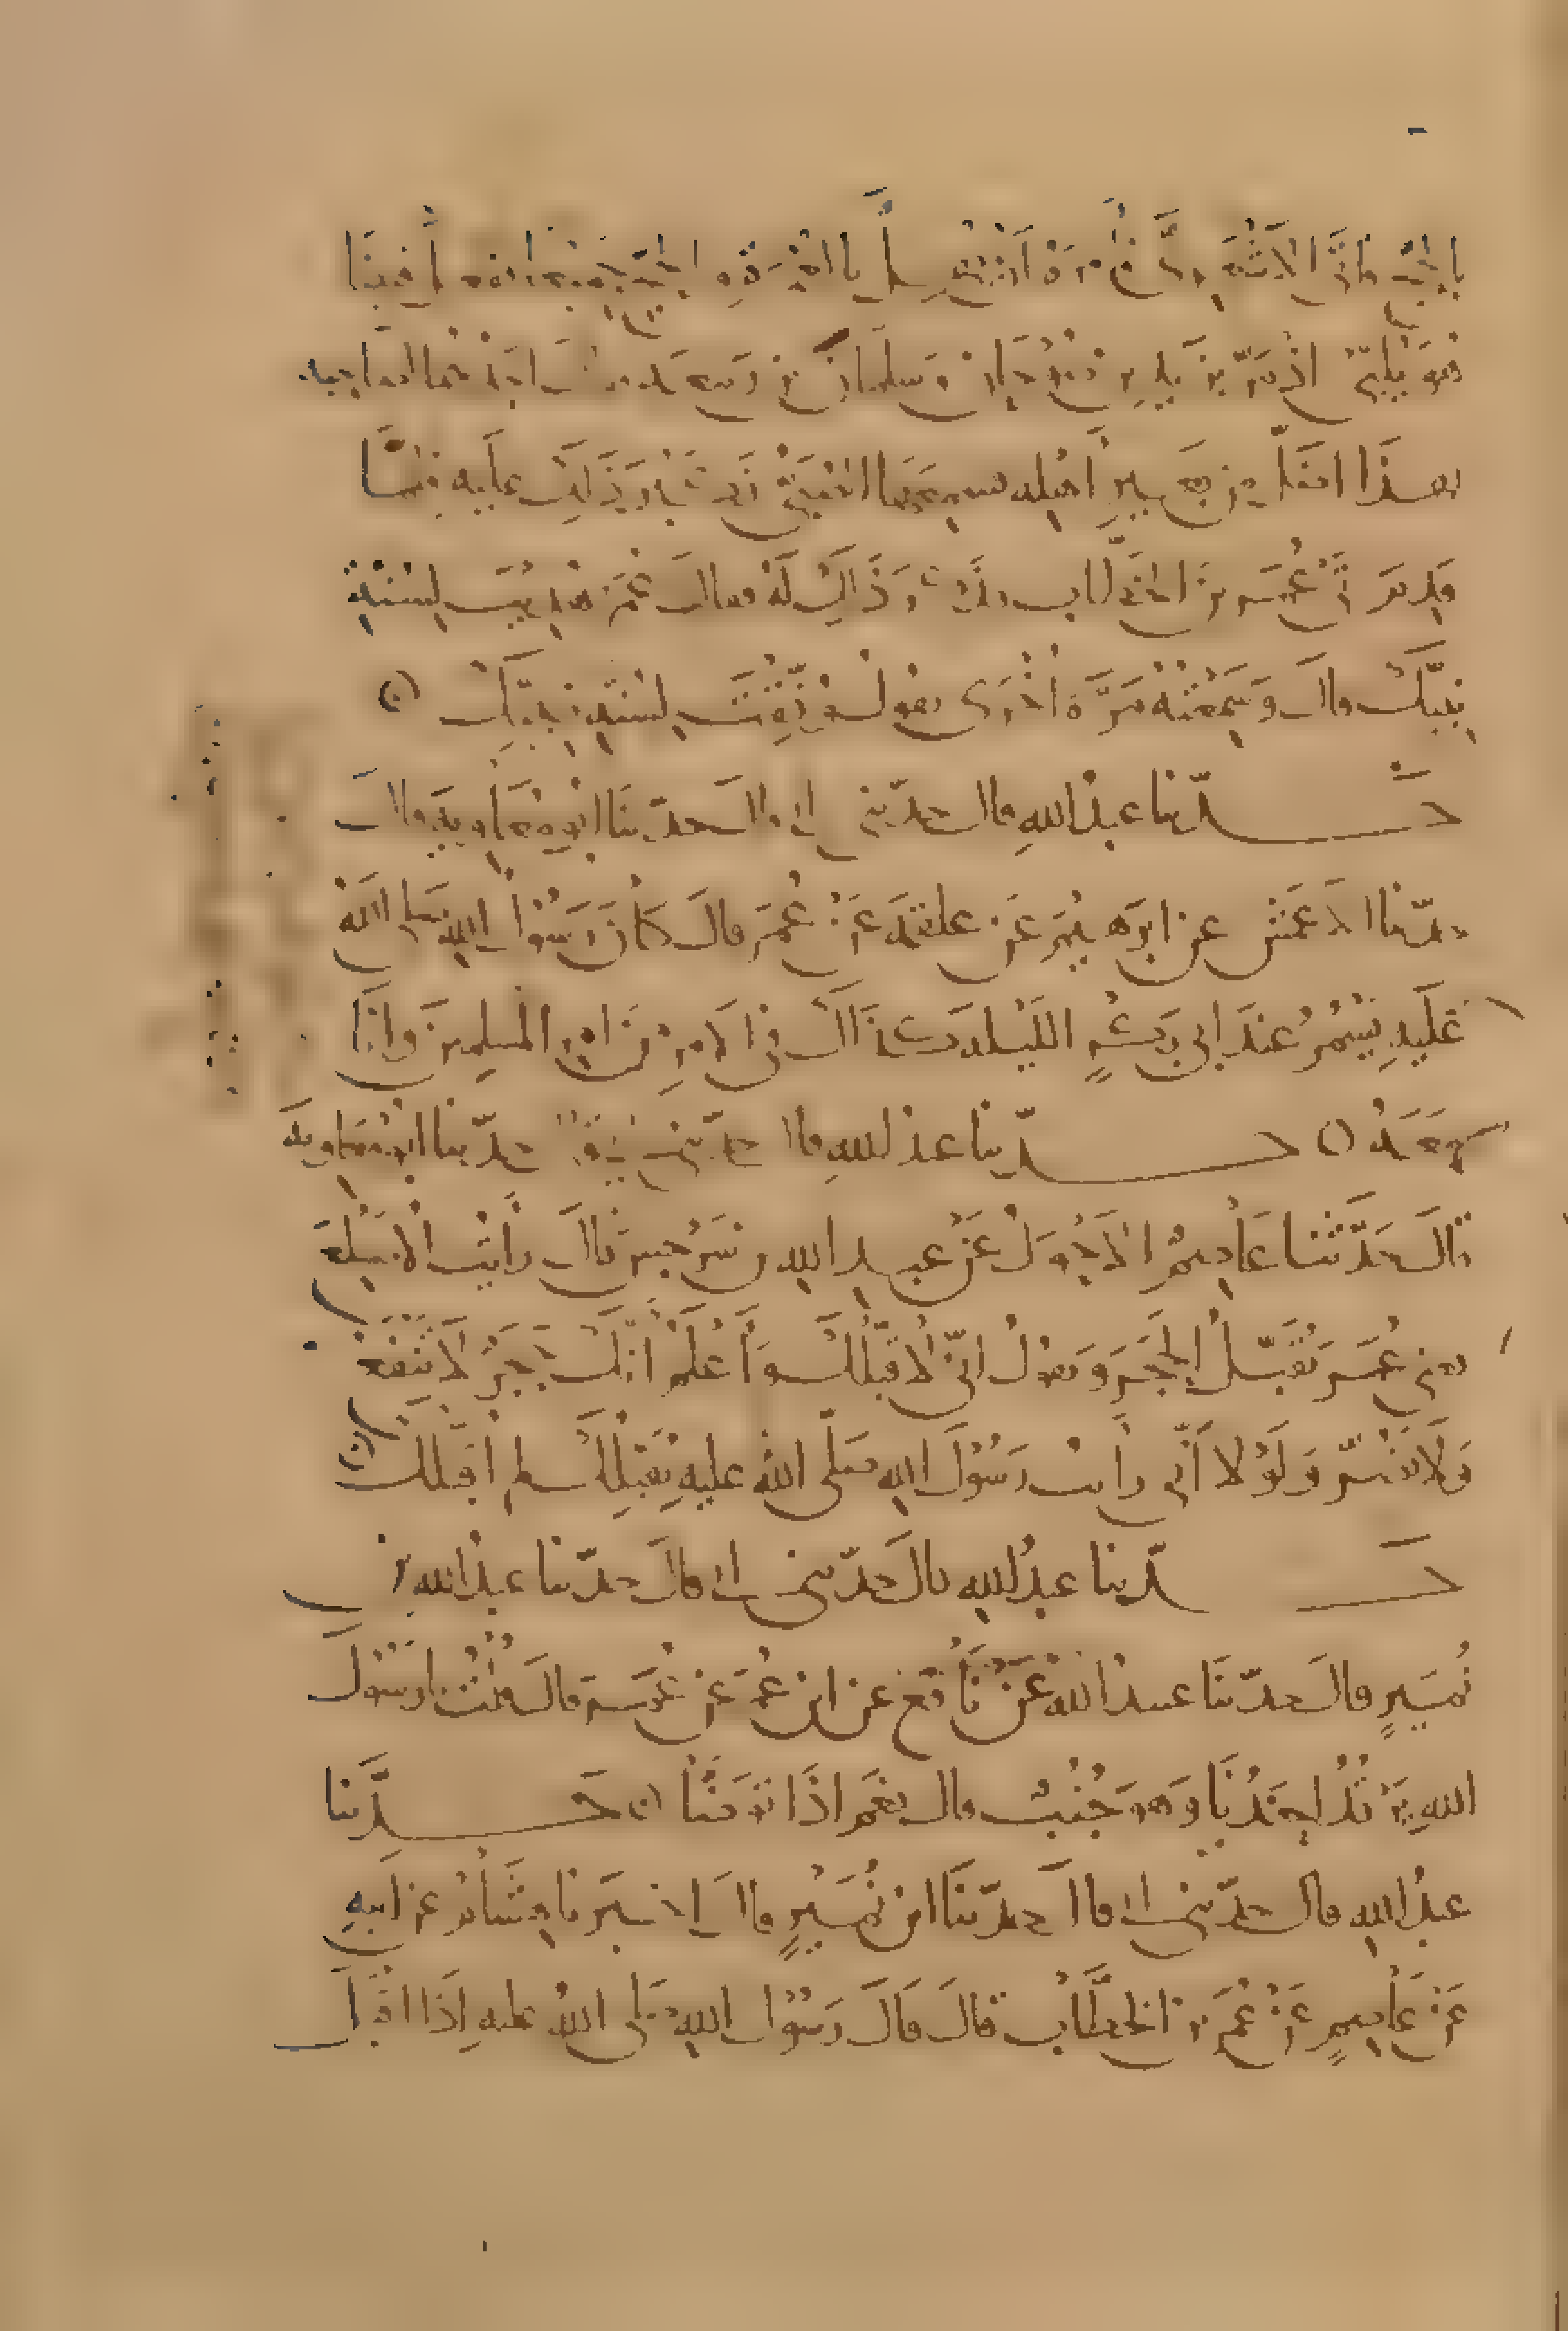 بالحج فانى الاشعرى ان مرة ان يهل بالعمرة والحج جميعا فبينا
هو يلبى اذ مر بزيد بن صوحان وسلمان بن ربيعة فقال احدهما لصاحبه
لهذا اضل من بعير اهله فسمعها الصبى فكبر ذلك عليه فلما
قدم على عمر بن الخطاب ذكر ذلك له فقال عمر هديت لسنة
نبيك قال وسمعته مرة اخرى يقول وفقت لسنة نبيك
حدثنا عبد الله قال حدثنى ابى قال حدثنا ابو معاوية قال
حدثنا الاعمش عن ابرهيم عن علقمة عن عمر قال كان رسول الله صلى الله
عليه يسمر عند ابى بكر الليلة كذاك فى الامر من امر المسلمين وانا
معه حدثنا عبد الله قال حدثنى ابى حدثنا ابو معاوية
قال حدثنا عاصم الاحول عن عبد الله بن سرجس قال رايت الاصيلع
يعنى عمر يقبل الحجر ويقول انى لاقبلك واعلم انك حجر لا تنفع
ولا تضر ولولا انى رايت رسول الله صلى الله عليه يقبلك لم اقبلك
حدثنا عبد الله قال حدثنى ابى قال حدثنا عبد الله بن
نمير قال حدثنا عبيد الله عن نافع عن ابن عمر عن عمر قال قلت يا رسول
الله يرقد احدنا وهو جنب قال نعم اذا توضا حدثنا
عبد الله قال حدثنى ابى قال حدثنا ابن نمير قال اخبرنا هشام عن ابيه
عن عاصم عن عمر بن الخطاب قال قال رسول الله صلى الله عليه اذا اقبل